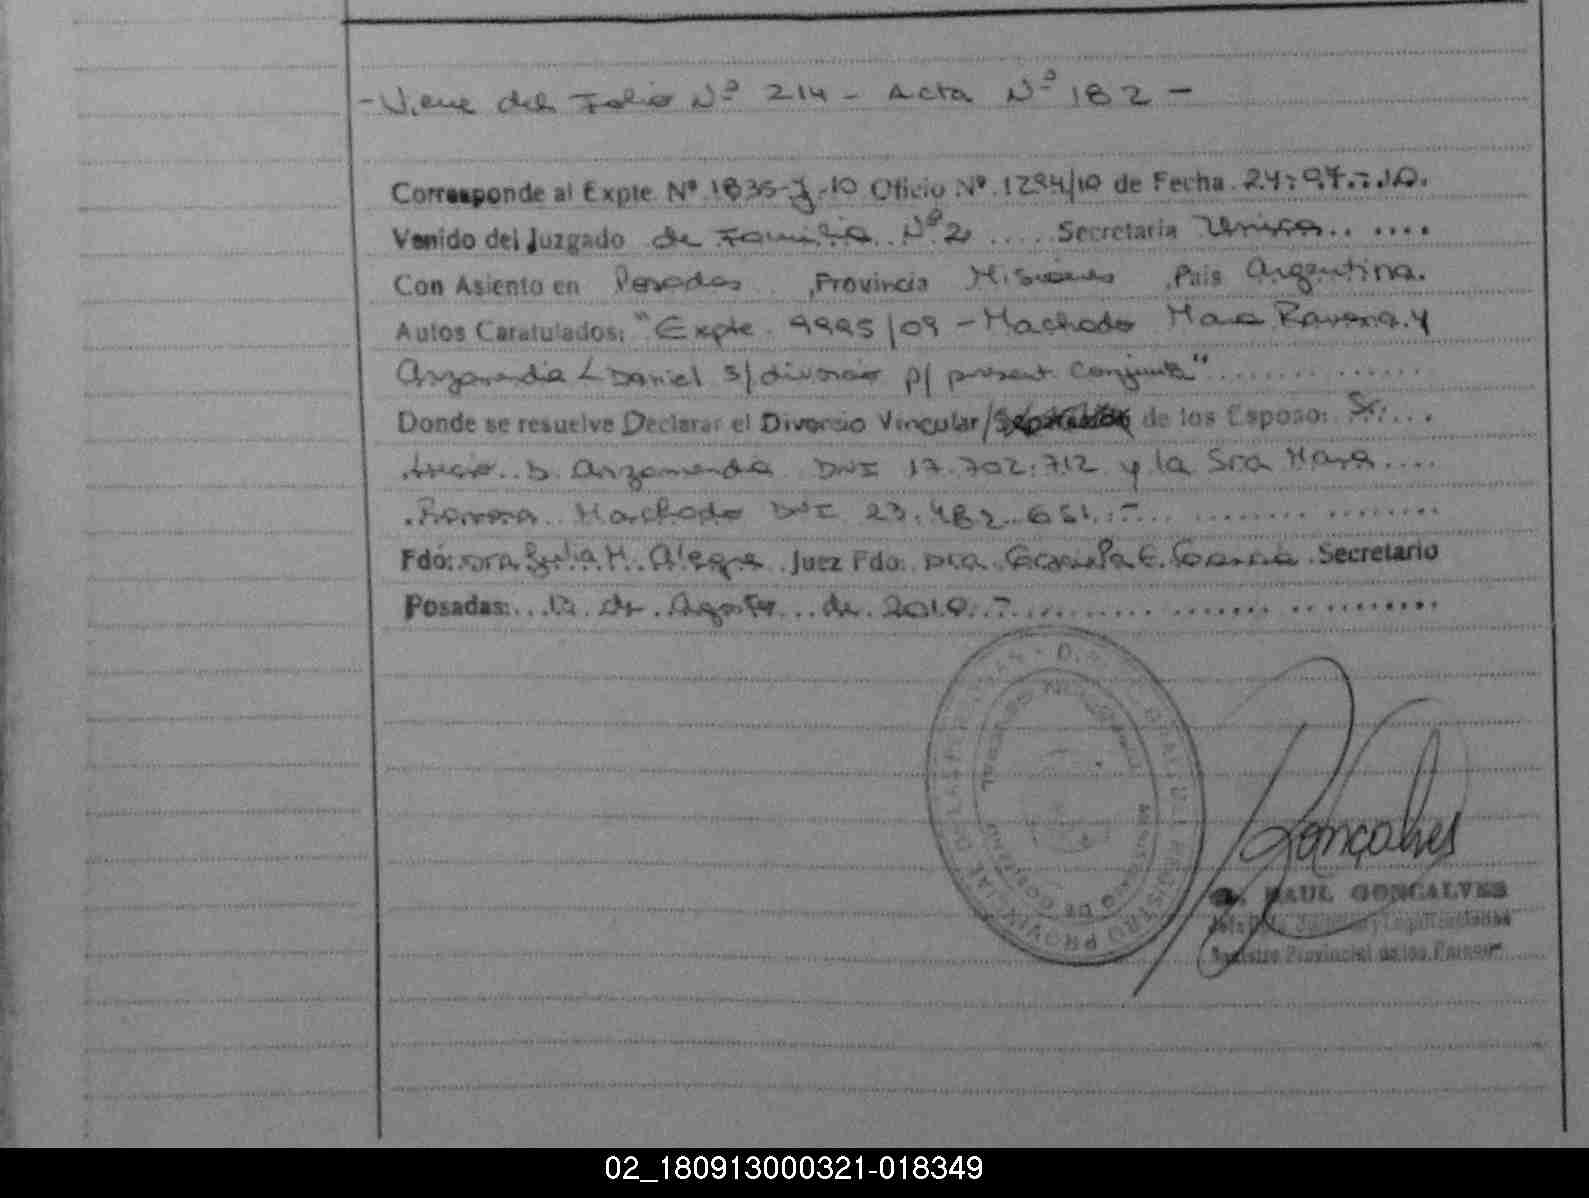 - Viene del Folio Nº 214 - Acta Nº 182 -
Corresponde al Expte. Nº 1835-J-10 Oficio Nº 1294/10 de Fecha 24-07-10.
Venido del Juzgado de Familia Nº 2 Secretaria Unica
Con Asiento en Posadas, Provincia Misiones, Pais Argentina.
Autos Caratulados: "Expte. 9995/09 - Machado Mara Ravena y
Arzamendia L Daniel s/ divorcio p/ present. conjunta"
Donde se resuelve Declarar el Divorcio Vincular/ de los Esposo: Sr.
Lucio D. Arzamendia DNI 17.702.712 y la Sra Mara
Machado DNI 23.482.651.-
Fdo: Dra Julia M. Alegre Juez Fdo: Dra. E. Secretario
Posadas: de Agosto de 2010.-
Gonçalves
RAUL GONCALVES
Registro Provincial de las Personas
REGISTRO PROVINCIAL DE LAS PERSONAS
MINISTERIO DE GOBIERNO
02_180913000321-018349